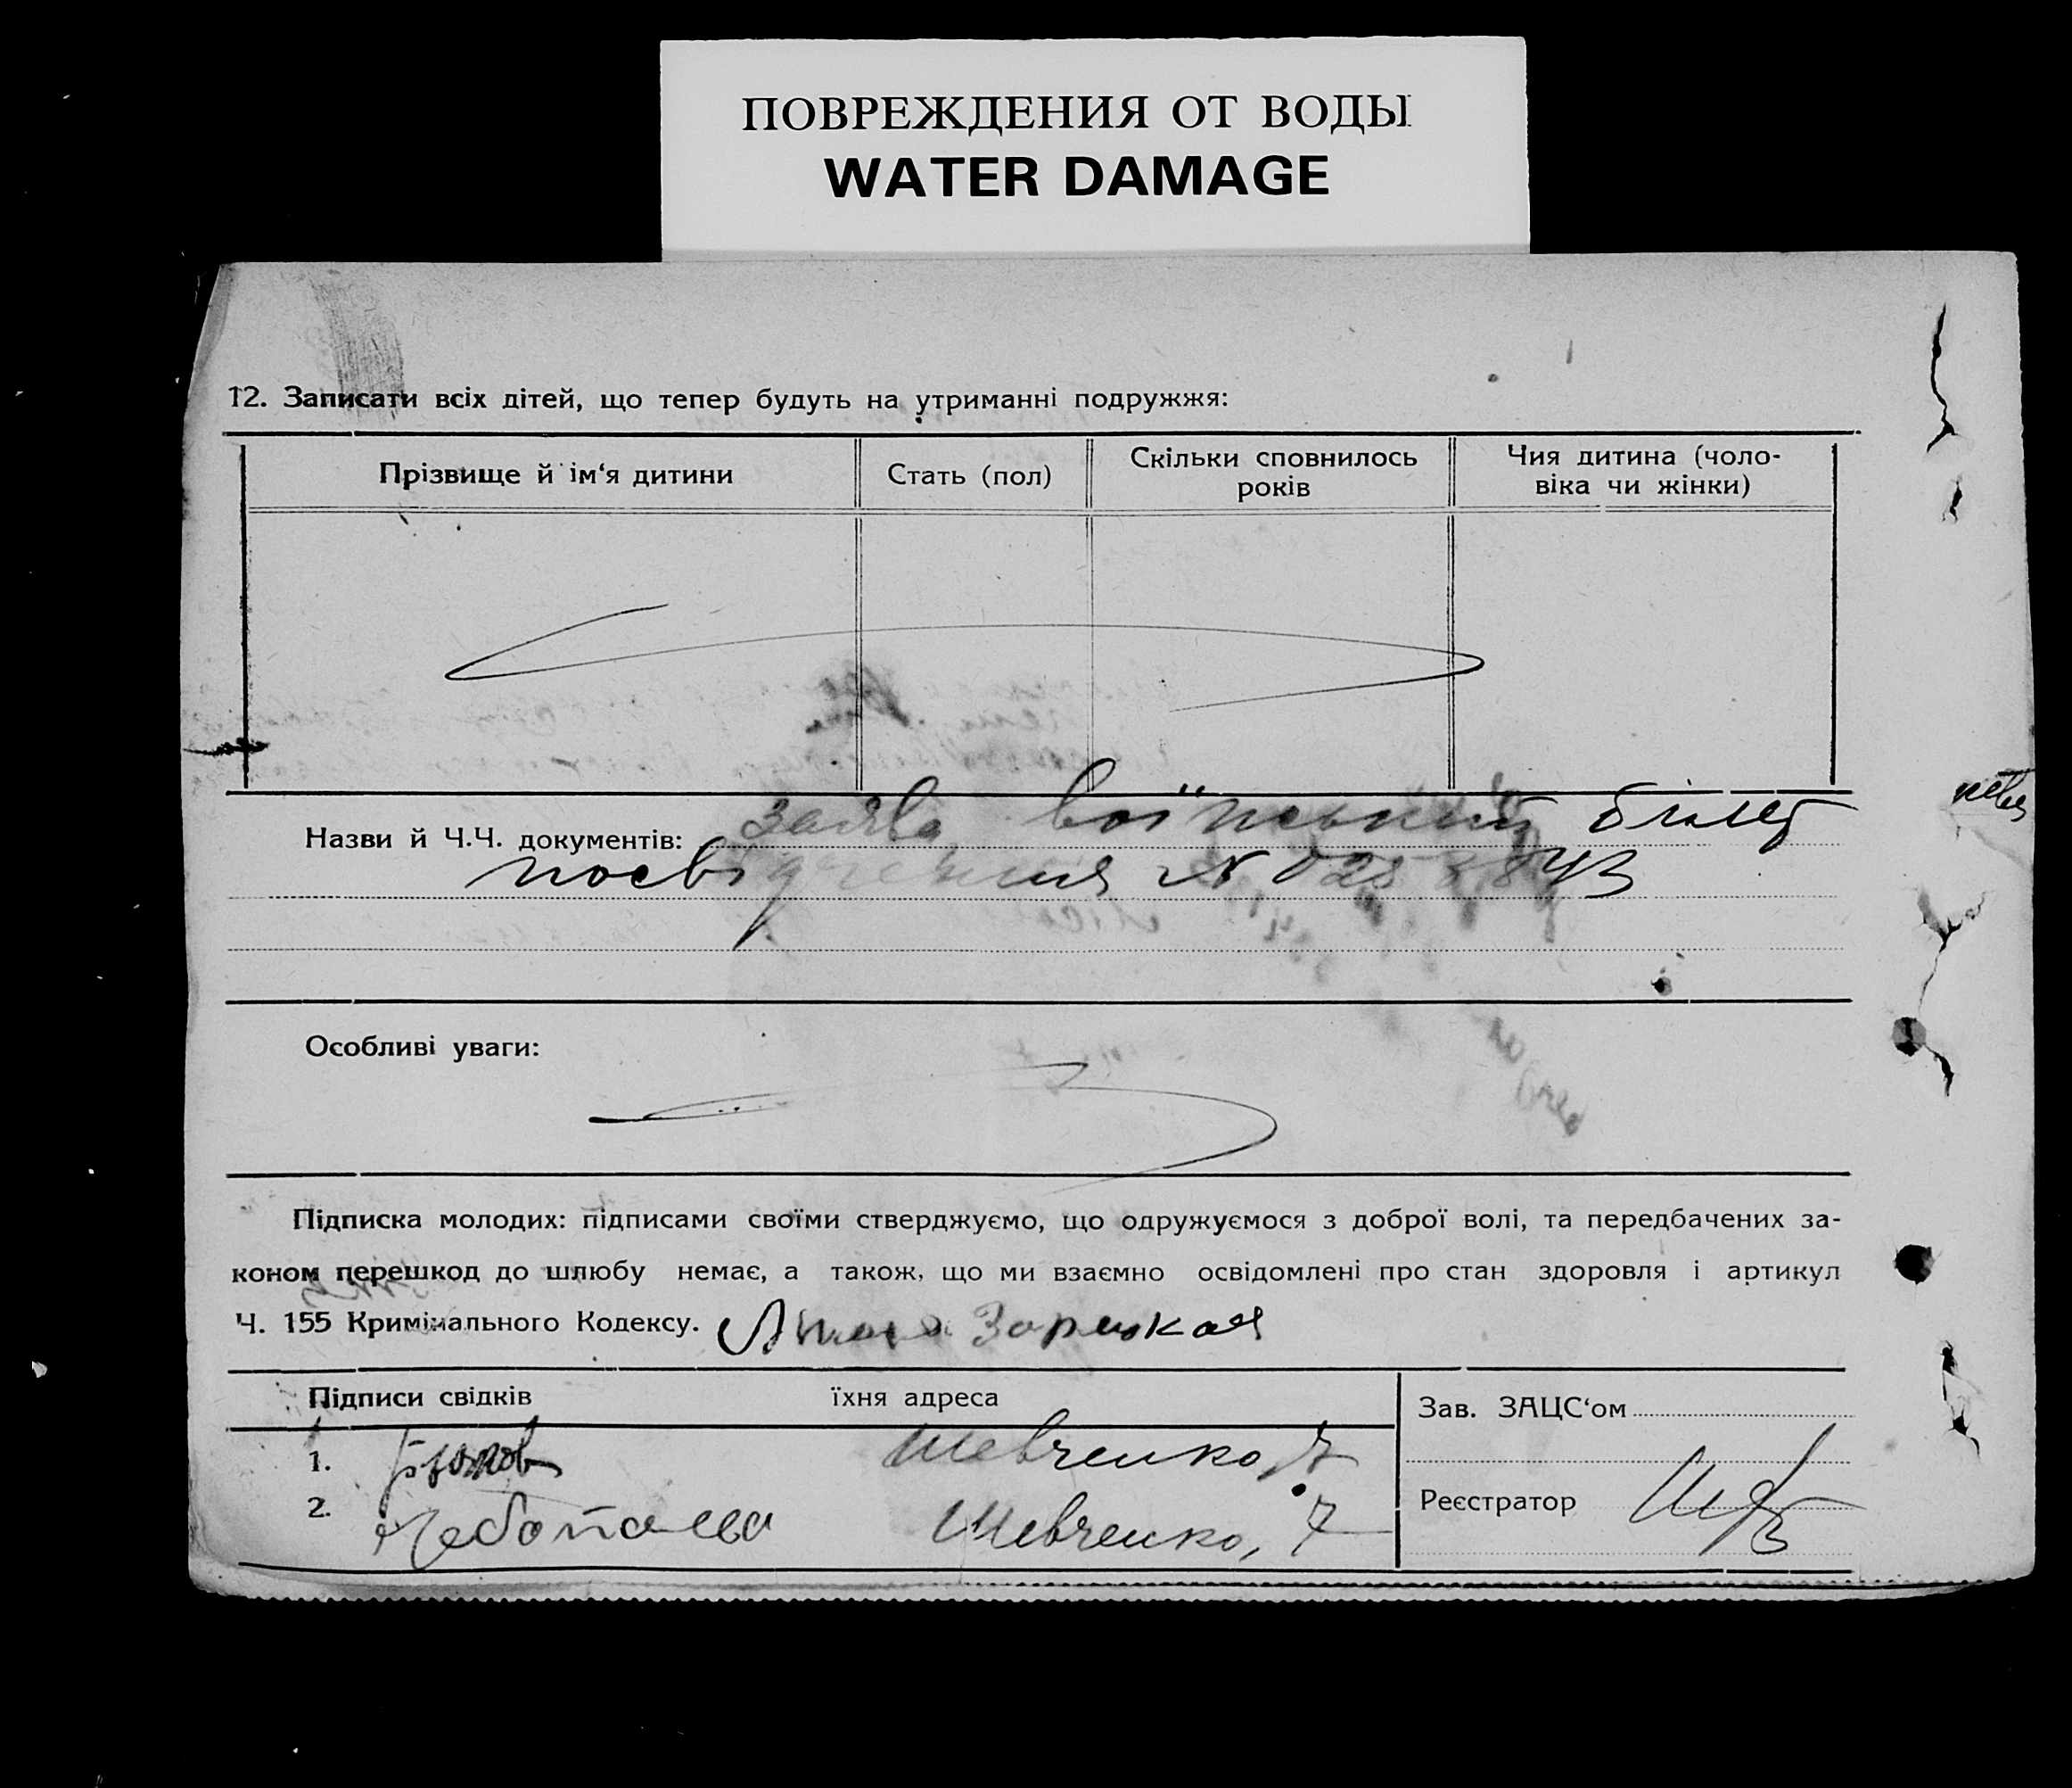 ПОВРЕЖДЕНИЯ ОТ ВОДЫ
WATER DAMAGE
12. Записати всіх дітей, що тепер будуть на утриманні подружжя:
Прізвище й ім‘я дитини
Стать (пол)
Скільки сповнилось
років
Чия дитина (чоло-
віка чи жінки)
Назви й Ч.Ч. документів: заява воїнський білет
посвідчення №
Особливі уваги:
Підписка молодих: підписами своїми стверджуємо, що одружуємося з доброї волі, та передбачених за-
коном перешкод до шлюбу немає, а також, що ми взаємно освідомлені про стан здоровля і артикул
Ч. 155 Кримінального Кодексу. Зарицкая
Підписи свідків їхня адреса
1. Шевченко, 7
2. Шевченко, 7
Зав. ЗАЦС‘ом
Реєстратор